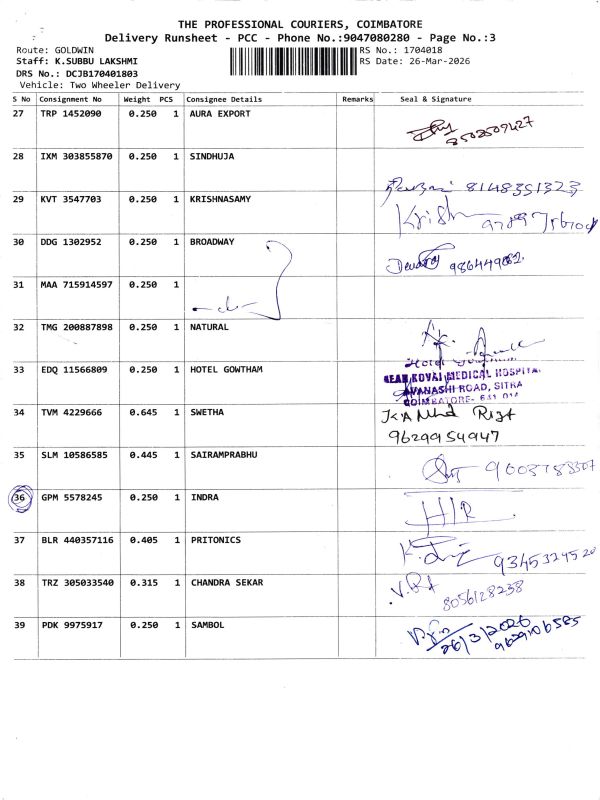 THE PROFESSIONAL COURIERS, COIMBATORE
Delivery Runsheet - PCC - Phone No.:9047080280 - Page No.:3
Route: GOLDWIN
RS No.: 1704018
Staff: K.SUBBU LAKSHMI
RS Date: 26-Mar-2026
DRS No.: DCJB170401803
Vehicle: Two Wheeler Delivery
S No Consignment No Weight PCS Consignee Details Remarks Seal & Signature
27 TRP 1452090 0.250 1 AURA EXPORT
8502509427
28 IXM 303855870 0.250 1 SINDHUJA
8148351323
29 KVT 3547703 0.250 1 KRISHNASAMY
Krish
30 DDG 1302952 0.250 1 BROADWAY
31 MAA 715914597 0.250 1
32 TMG 200887898 0.250 1 NATURAL
33 EDQ 11566809 0.250 1 HOTEL GOWTHAM
KOVAI MEDICAL HOSPITAL
AVANASHI ROAD, SITRA
COIMBATORE- 641 014
34 TVM 4229666 0.645 1 SWETHA
9629954947
35 SLM 10586585 0.445 1 SAIRAMPRABHU
36 GPM 5578245 0.250 1 INDRA
H/R
37 BLR 440357116 0.405 1 PRITONICS
9345324520
38 TRZ 305033540 0.315 1 CHANDRA SEKAR
8056128238
39 PDK 9975917 0.250 1 SAMBOL
26/3/2026
9629106585